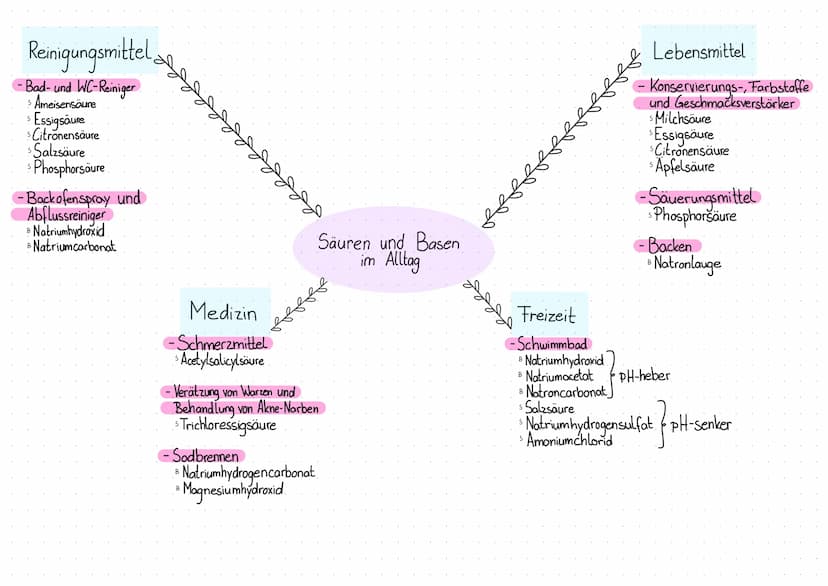 Reinigungsmittel
- Bad- und WC-Reiniger
S Ameisensäure
S Essigsäure
S Citronensäure
S Salzsäure
S Phosphorsäure
- Backofenspray und
Abflussreiniger
B Natriumhydroxid
B Natriumcarbonat
Lebensmittel
- Konservierungs-, Farbstoffe
und Geschmacksverstärker
S Milchsäure
S Essigsäure
S Citronensäure
S Äpfelsäure
- Säuerungsmittel
S Phosphorsäure
- Backen
B Natronlauge
Säuren und Basen
im Alltag
Medizin
- Schmerzmittel
S Acetylsalicylsäure
- Verätzung von Warzen und
Behandlung von Akne-Narben
S Trichloressigsäure
- Sodbrennen
B Natriumhydrogencarbonat
B Magnesiumhydroxid
Freizeit
- Schwimmbad
B Natriumhydroxid
B Natriumacetat
B Natroncarbonat
pH-heber
S Salzsäure
S Natriumhydrogensulfat
S Amoniumchlorid
pH-senker